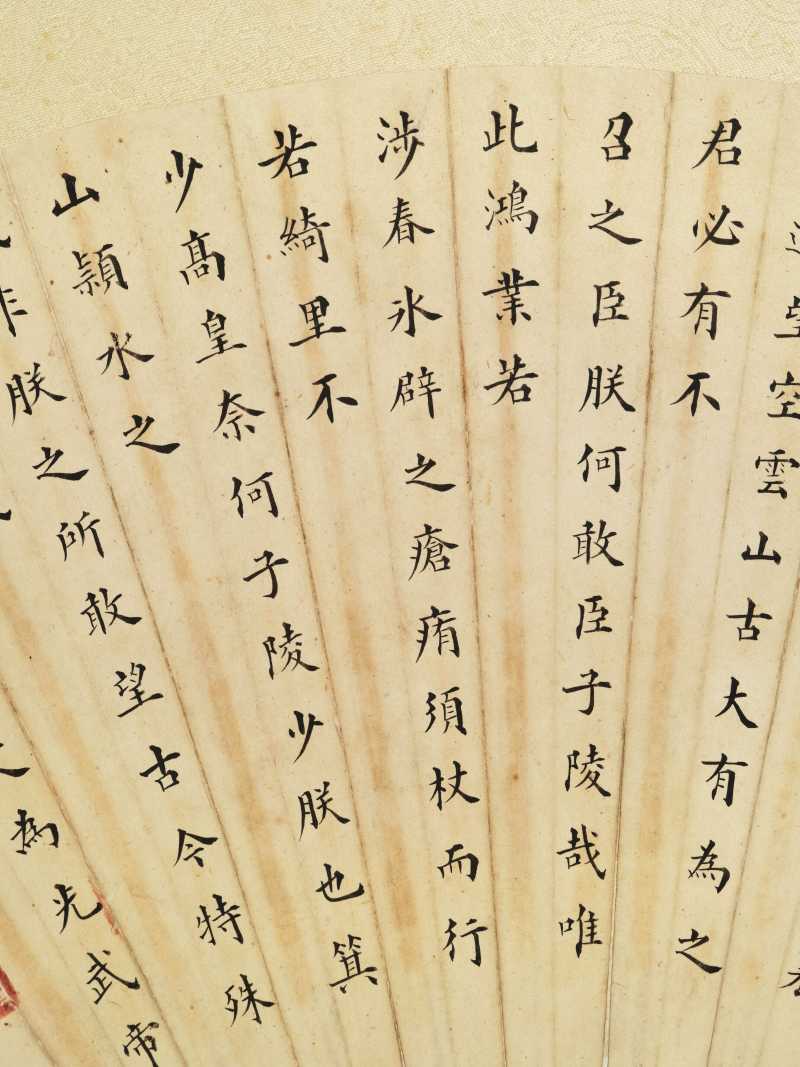 望空雲山古大有為之
君必有不
召之臣朕何敢臣子陵哉唯
此鴻業若
涉春氷辟之瘡痏須杖而行
若綺里不
少高皇奈何子陵少朕也箕
山頴水之
非朕之所敢望古今特殊
光武帝